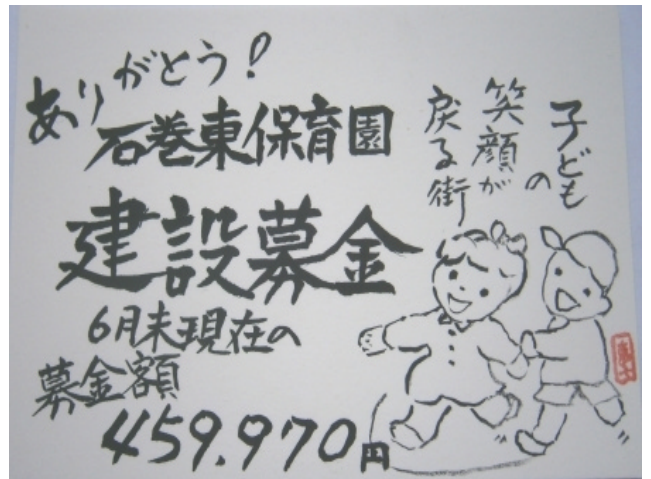 ありがとう!
石巻東保育園
建設募金
6月末現在の
募金額
459.970円
子どもの
笑顔が
戻る街